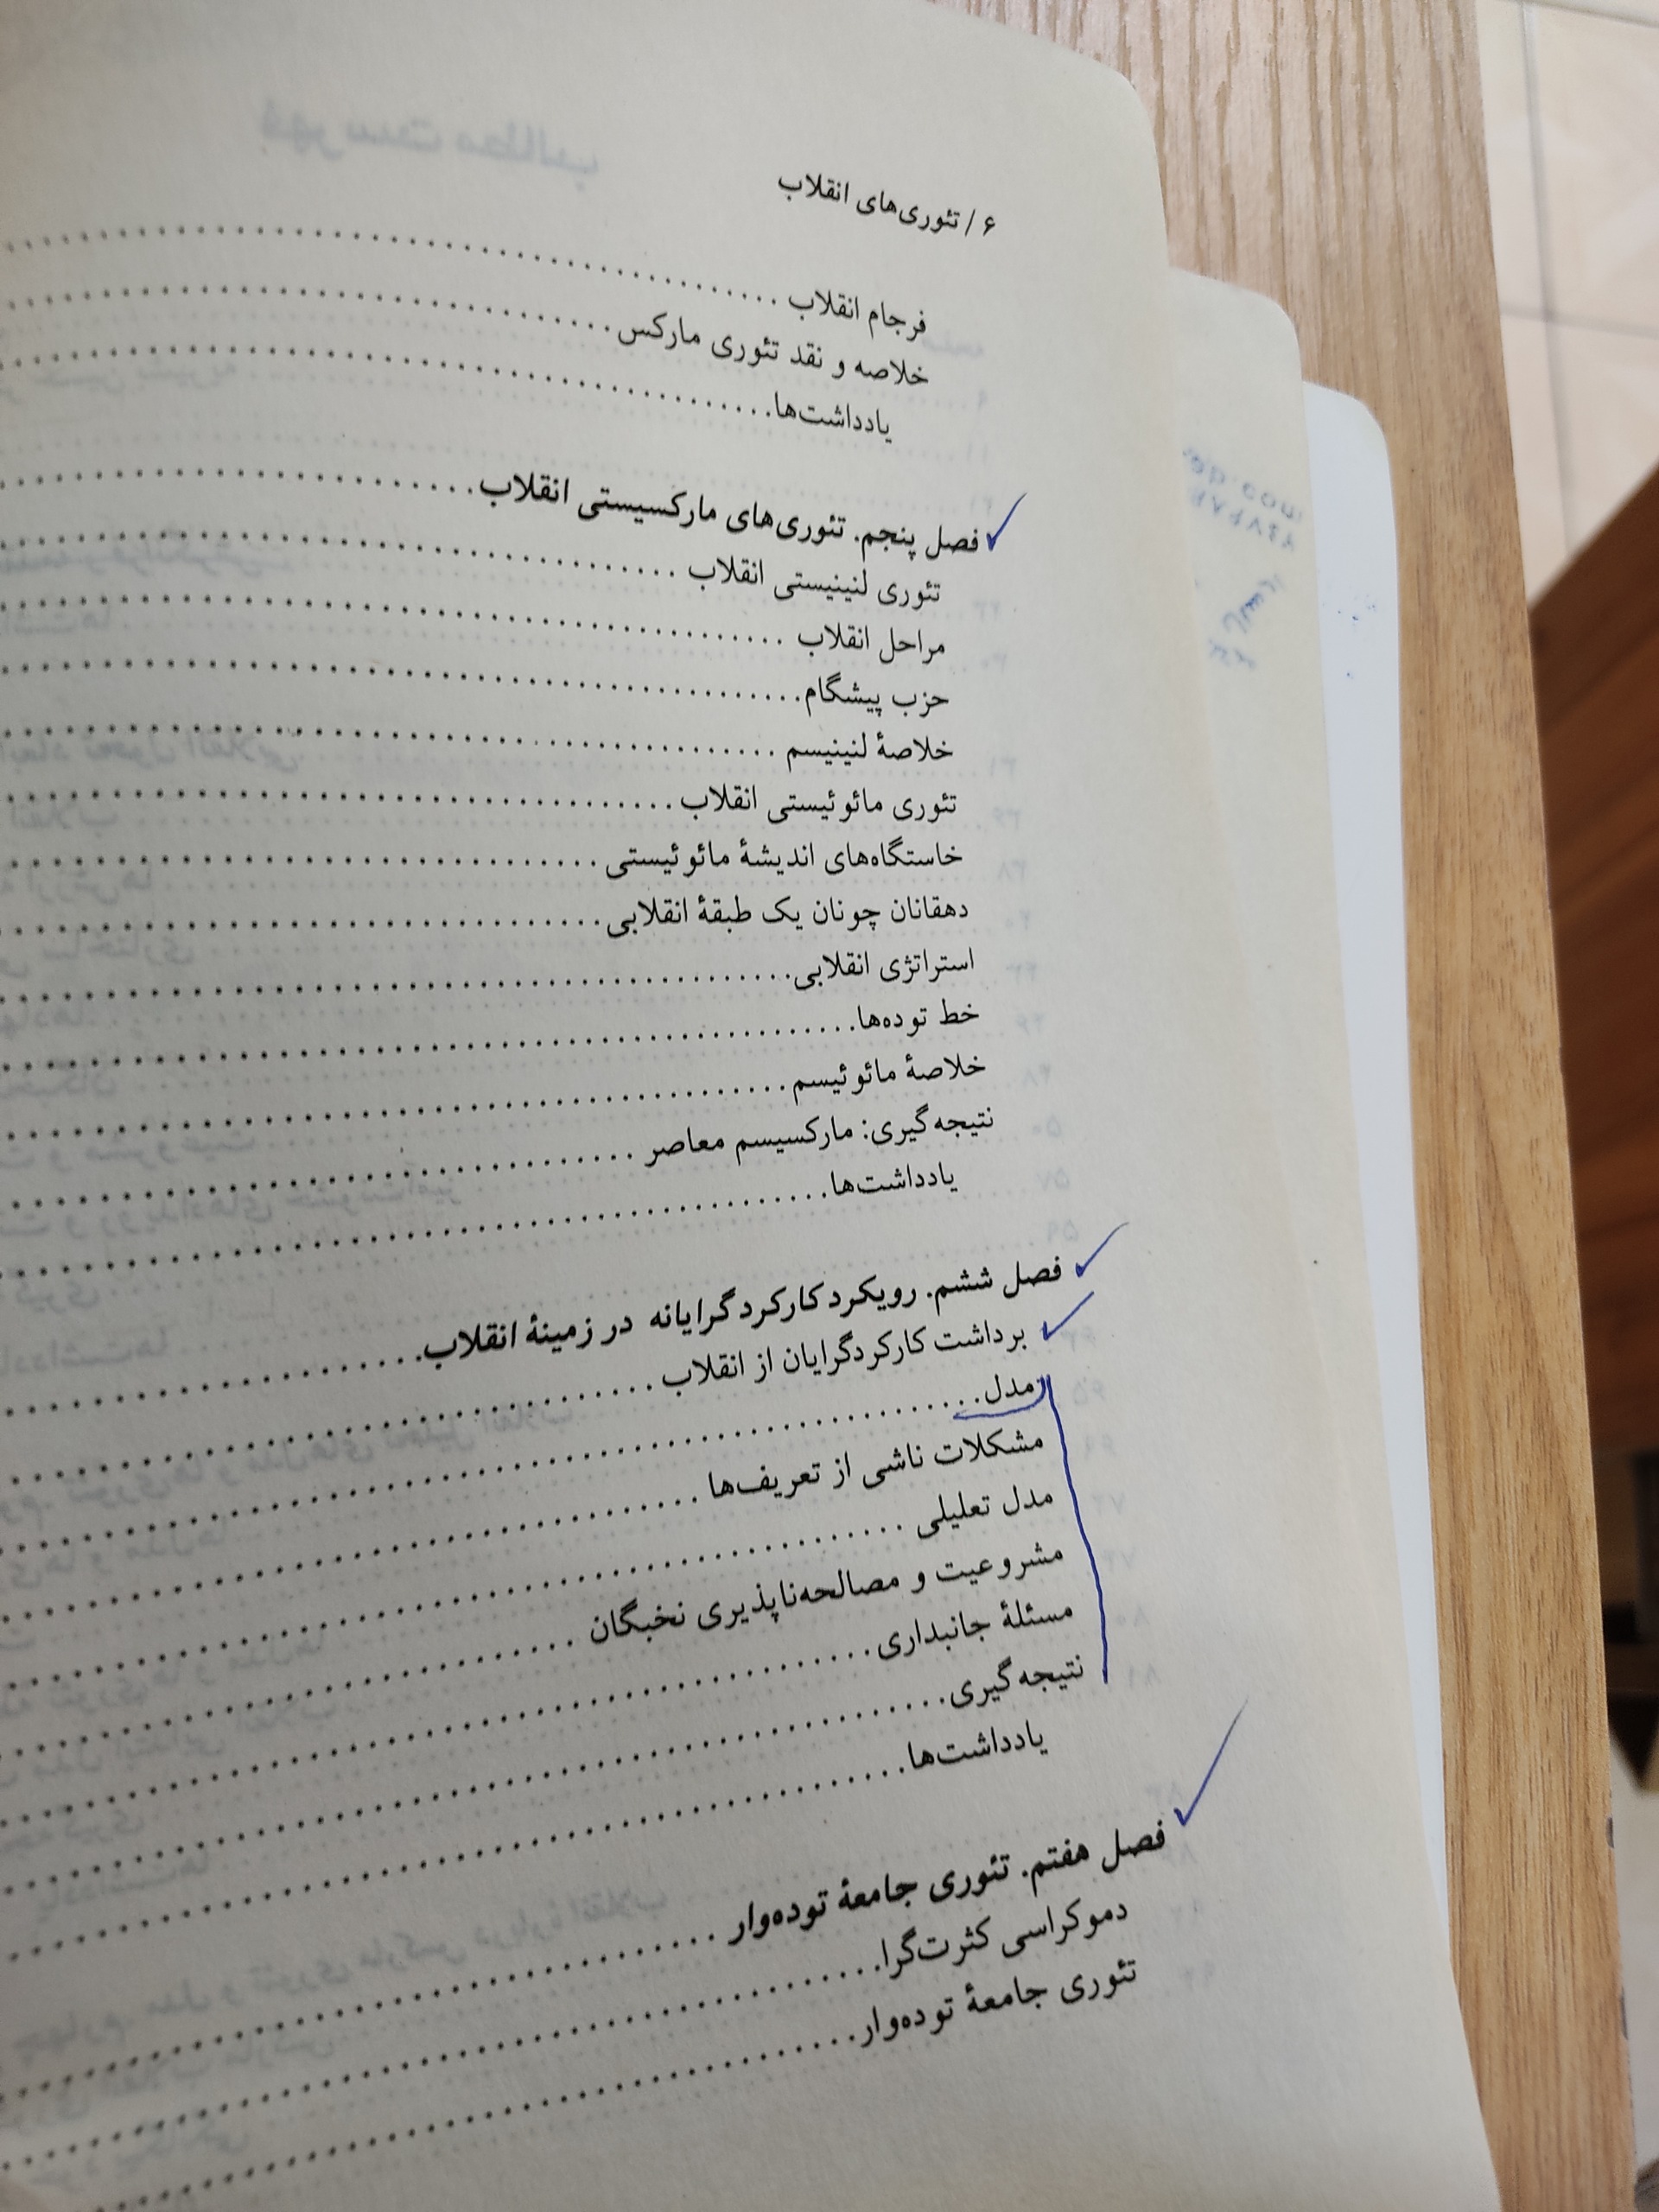 ۶ / تئوری‌های انقلاب
فرجام انقلاب
خلاصه و نقد تئوری مارکس
یادداشت‌ها
فصل پنجم. تئوری‌های مارکسیستی انقلاب
تئوری لنینیستی انقلاب
مراحل انقلاب
حزب پیشگام
خلاصهٔ لنینیسم
تئوری مائوئیستی انقلاب
خاستگاه‌های اندیشهٔ مائوئیستی
دهقانان چونان یک طبقهٔ انقلابی
استراتژی انقلابی
خط توده‌ها
خلاصهٔ مائوئیسم
نتیجه‌گیری: مارکسیسم معاصر
یادداشت‌ها
فصل ششم. رویکرد کارکردگرایانه در زمینهٔ انقلاب
برداشت کارکردگرایان از انقلاب
مدل
مشکلات ناشی از تعریف‌ها
مدل تعلیلی
مشروعیت و مصالحه‌ناپذیری نخبگان
مسئلهٔ جانبداری
نتیجه‌گیری
یادداشت‌ها
فصل هفتم. تئوری جامعهٔ توده‌وار
دموکراسی کثرت‌گرا
تئوری جامعهٔ توده‌وار